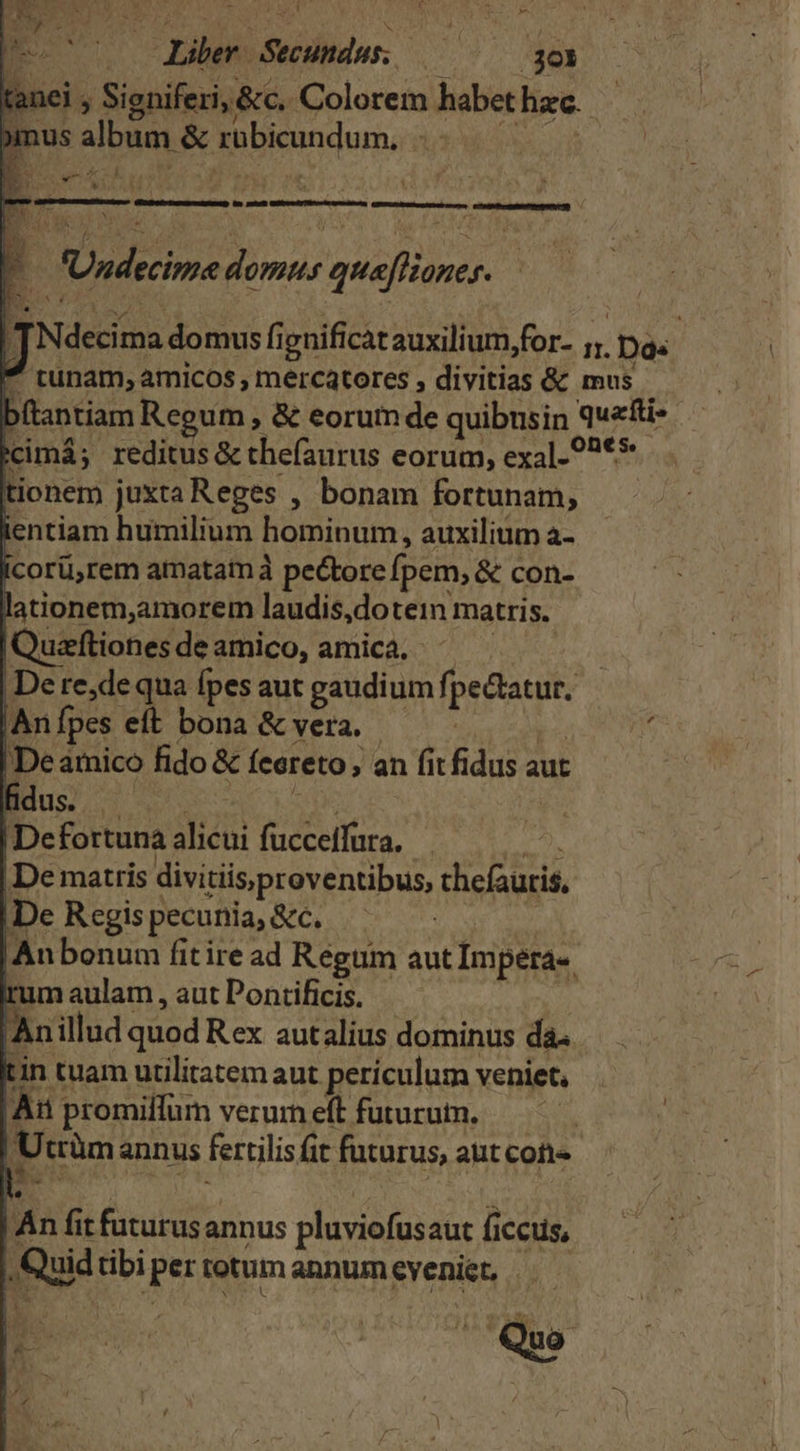 Liber Secundus. 301
tanei, Signiferi, &c. Colorem habet hæc
mus album & rubicundum.
Undecimæ domus quæſtiones.
UNdecima domus ſignificat auxilium, for- 11. Do-
tunam, amicos, mercatores, divitias & mus
bſtantiam Regum, & eorum de quibus in quæſti-
cimâ; reditus & theſaurus eorum, exal- ones.
tionem juxta Reges, bonam fortunam,
ientiam humilium hominum, auxilium a-
icorū, rem amatam à pectore ſpem, & con-
lationem, amorem laudis, dotem matris.
Quæſtiones de amico, amica.
De re, de qua ſpes aut gaudium ſpectatur.
An ſpes eſt bona & vera.
De amico fido & ſecreto, an ſit fidus aut
fidus.
De fortuna alicui ſucceſſura.
De matris divitiis, proventibus, theſauris.
De Regis pecunia, &c.
An bonum ſit ire ad Regum aut Impera-
rum aulam, aut Pontificis.
An illud quod Rex aut alius dominus da-
t in tuam utilitatem aut periculum veniet.
An promiſſum verum eſt futurum.
Utrùm annus fertilis ſit futurus, aut con-
An ſit futurus annus pluvioſus aut ſiccus.
Quid tibi per totum annum eveniet.
Quo